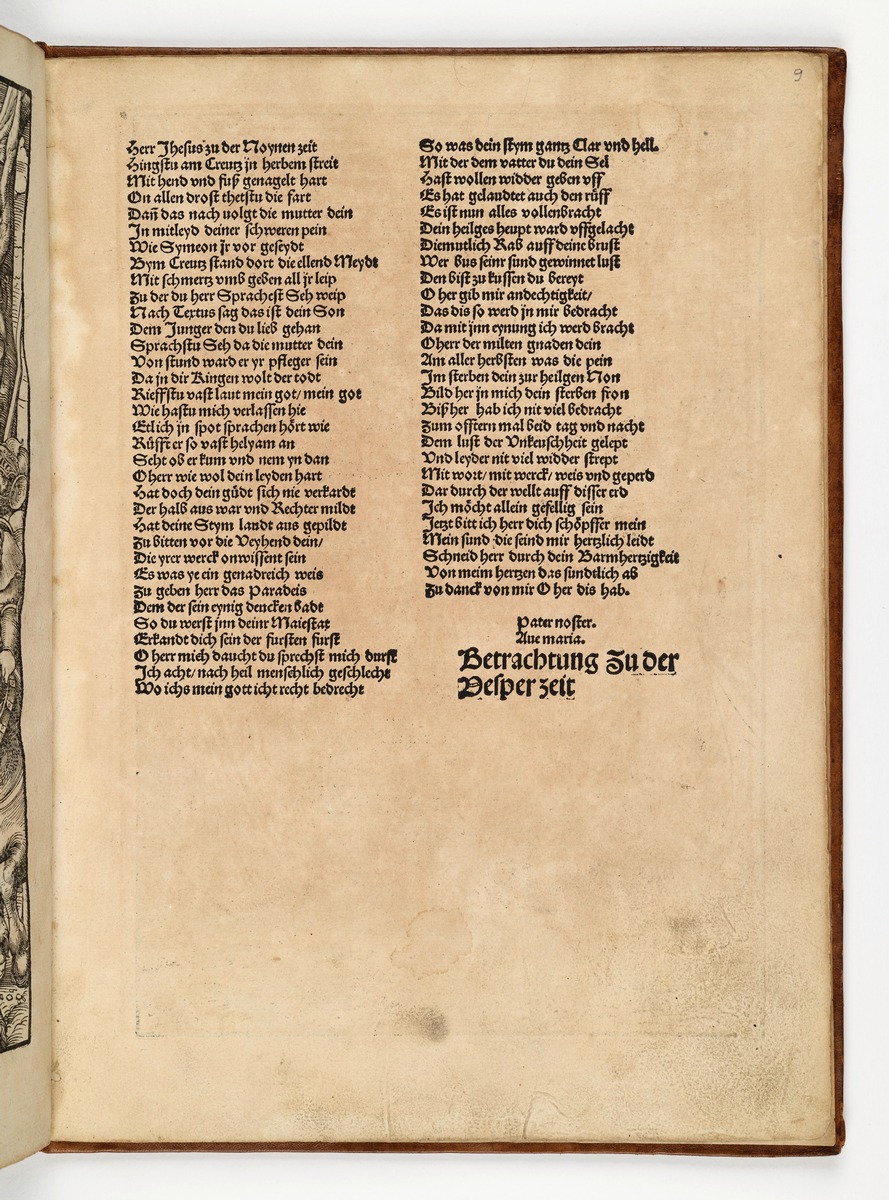 9
Herr Jhesus zu der Noynen zeit
Hingstu am Creutz jn herbem streit
Mit hend vnd fuß genagelt hart
On allen drost thetstu die fart
Dañ das nach uolgt die mutter dein
In mitleyd deiner schweren pein
Wie Symeon jr vor geseydt
Bym Creutz stand dort die ellend Meydt
Mit schmertz vmb geben all jr leip
Zu der du herr Sprachest Seh weip
Nach Textus sag das ist dein Son
Dem Junger den du lieb gehan
Sprachstu Seh da die mutter dein
Von stund ward er yr pfleger sein
Da jn dir Ringen wolt der todt
Rieffstu vast laut mein got/ mein got
Wie hastu mich verlassen hie
Etlich jn spot sprachen hört wie
Rüfft er so vast helyam an
Seht ob er kum vnd nem yn dan
O herr wie wol dein leyden hart
Hat doch dein güdt sich nie verkardt
Der halb aus war vnd Rechter mildt
Hat deine Stym laudt aus gepildt
Zu bitten vor die Veyhend dein/
Die yrer werck onwissent sein
Es was ye ein genadreich weis
Zu geben herr das Paradeis
Dem der sein eynig dencken badt
So du werst jnn deinr Maiestat
Erkandt dich sein der fursten furst
O herr mich daucht du sprechst mich durst
Ich acht/ nach heil menschlich geschlecht
Wo ichs mein gott icht recht bedrecht
So was dein stym gantz Clar vnd hell.
Mit der dem vatter du dein Sel
Hast wollen widder geben vff
Es hat gelaudtet auch den rüff
Es ist nun alles vollenbracht
Dein heilges heupt ward vffgelacht
Diemutlich Rab auff deine brust
Wer bus seinr sund gewinnet lust
Den bist zu kussen du bereyt
O her gib mir andechtigkeit/
Das dis so werd jn mir bedracht
Da mit jnn eynung ich werd bracht
O herr der milten gnaden dein
Am aller herbsten was die pein
Im sterben dein zur heilgen Non
Bild her jn mich dein sterben fron
Biß her hab ich nit viel bedracht
Zum offtern mal beid tag vnd nacht
Dem lust der Vnkeuschheit gelept
Vnd leyder nit viel widder strept
Mit wort/ mit werck/ weis vnd geperd
Dar durch der wellt auff disser erd
Ich möcht allein gefellig sein
Jetzt bitt ich herr dich schöpffer mein
Mein sund die seind mir hertzlich leidt
Schneid herr durch dein Barmhertzigkeit
Von meim hertzen das sundtlich ab
Zu danck von mir O her dis hab.
Pater noster.
Aue maria.
Betrachtung Zu der
Vesper zeit